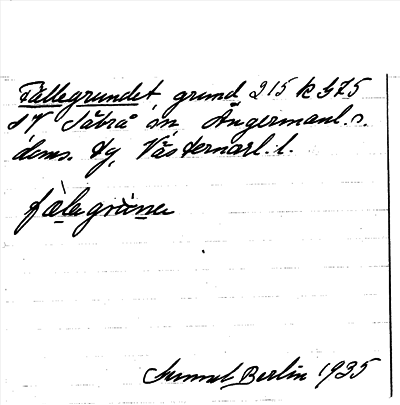 Fällegrundet, grund 215 k 375
SV Säbrå sn, Ångermanl. s.
doms. tg, Västernorrl. l.
fälegrúne
Sunnel Berlin 1935